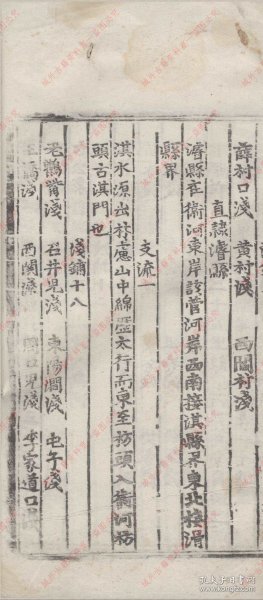 薛村口淺 黄村淺 西關村淺
直隸濬縣
濬縣在衛河東岸該管河岸西南接淇縣界東北接滑
縣界
支流一
淇水源出林慮山中綿歷太行而東至枋頭入衛河枋
頭古淇門也
淺鋪十八
老鸛觜淺 石井兒淺 東陽澗淺 屯子淺
馮淺 西關淺 兒淺 李家道口淺
孔夫子旧书网